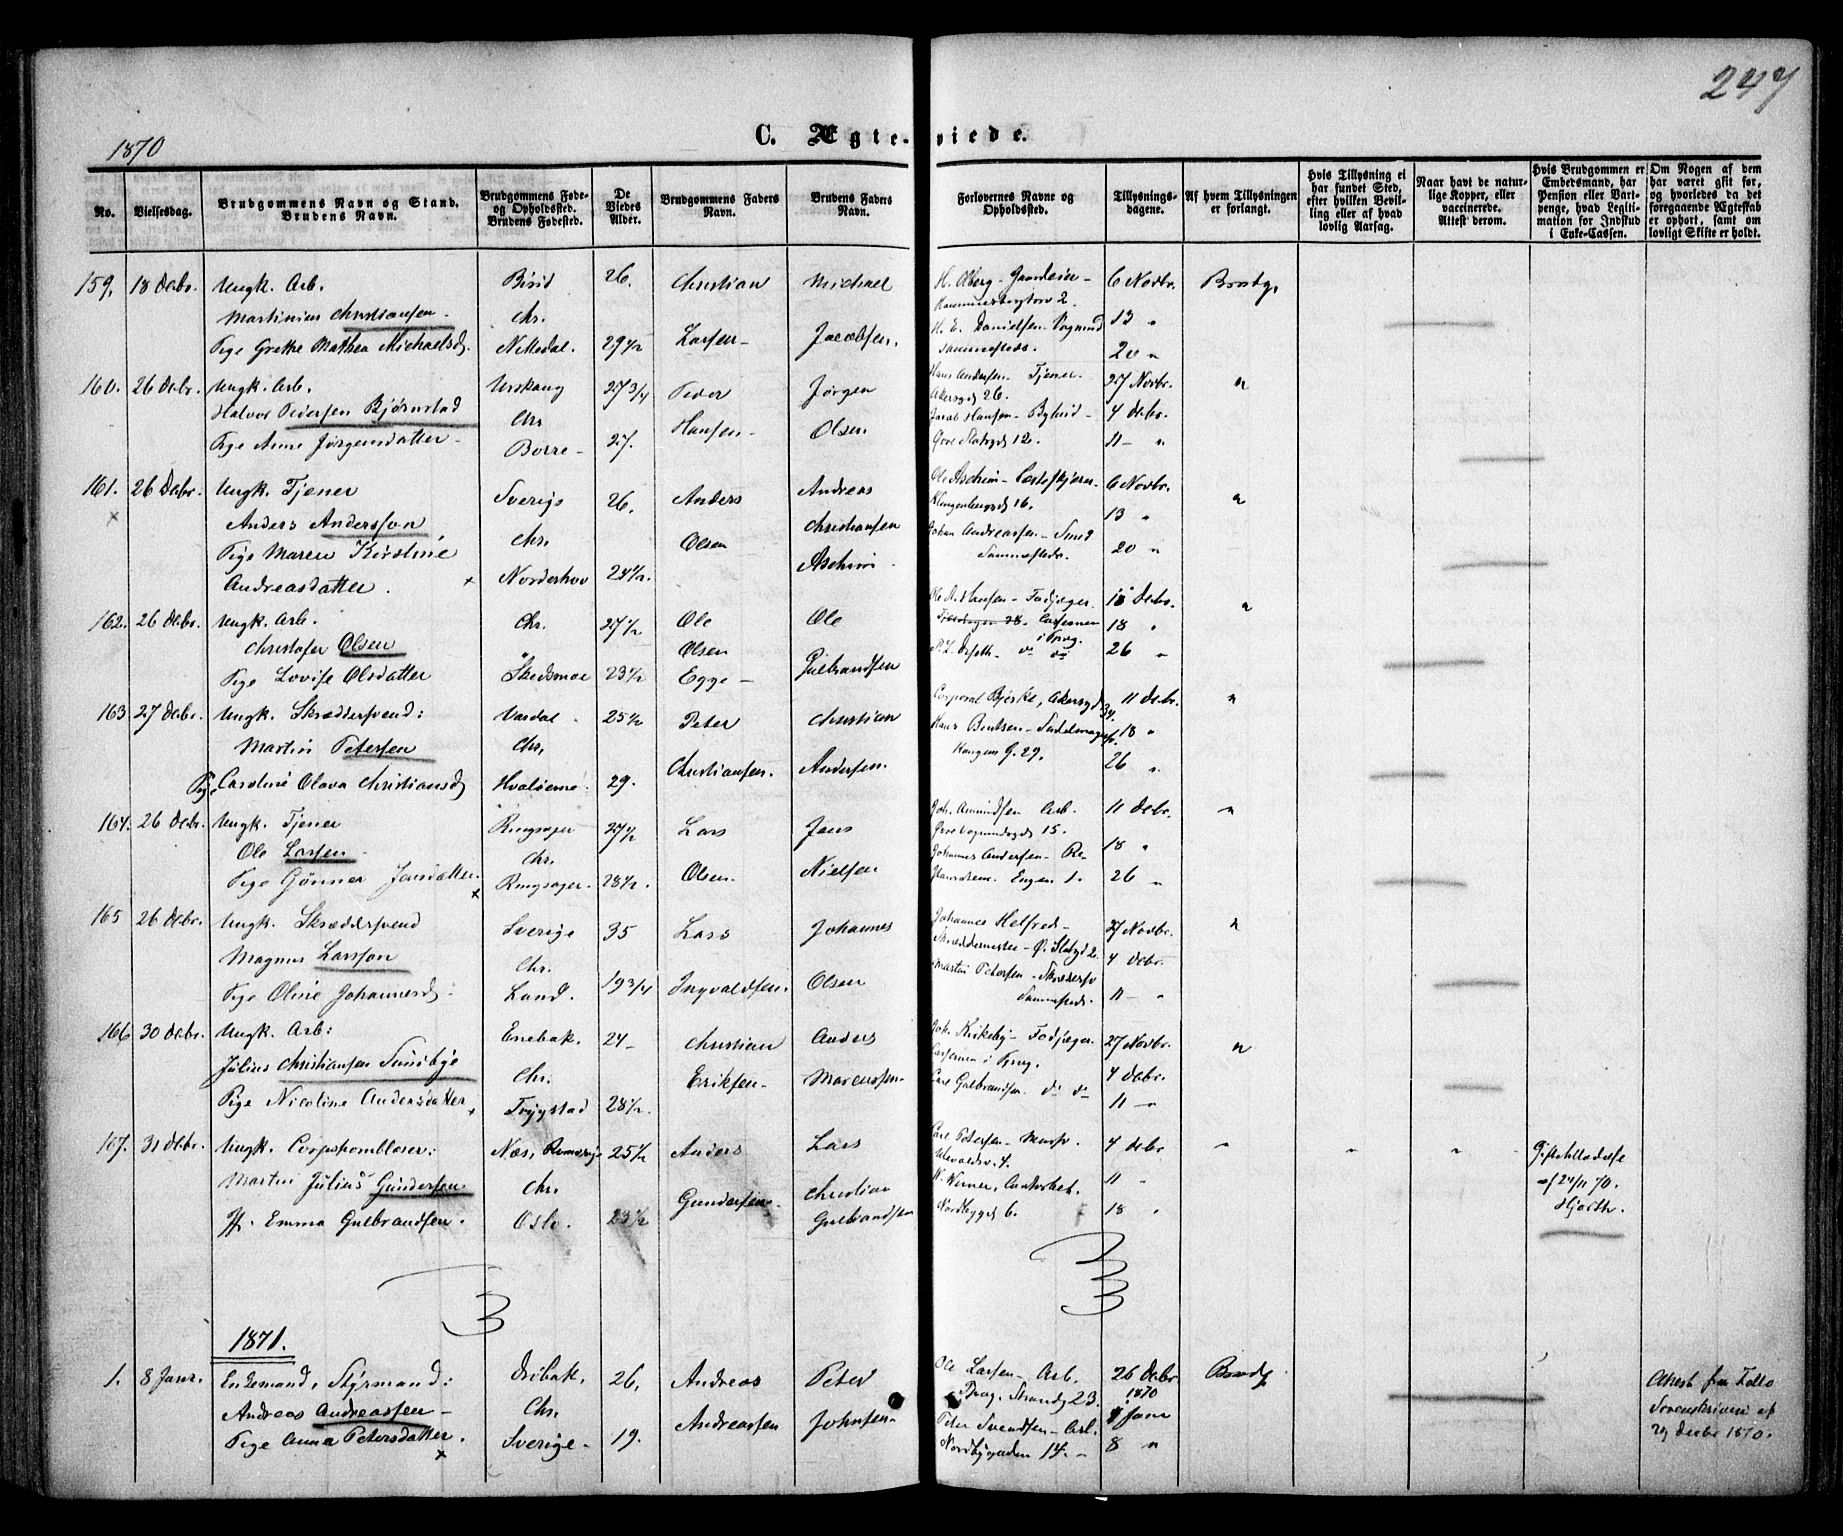 247
1870
C. Ægteviede.
No.
Vielsesdag.
Brudgommens Navn og Stand.
Brudens Navn.
Brudgommens Føde-
og Opholdssted.
Brudens Fødested.
De
Viedes
Alder.
Brudgommens Faders
Navn.
Brudens Faders
Navn.
Forlovernes Navne og
Opholdssted.
Tillysnings-
dagene.
Af hvem Tillysningen
er forlangt.
Hvis Tillysning ei
har fundet Sted,
efter hvilken Bevil-
ling eller af hvad
lovlig Aarsag.
Naar havt de natur-
lige Kopper, eller
vaccinerede.
Attest derom.
Hvis Brudgommen er
Embedsmand, har
Pension eller Vart-
penge, hvad Legiti-
mation for Indskud
i Enke-Cassen.
Om Nogen af dem
har været gift før,
og hvorledes da det
foregaaende Ægteskab
er ophørt, samt om
lovligt Skifte er holdt.
159. 18 Debr. Ungk. Arb. Birid 26. Christian Michael 6 Novbr. Brudg.
Martinius Christiansen. Chr. 13 "
Pige Grethe Mathea Michaelsd. Nittedal. 29 1/2 Larsen Jacobsen. 20 "
160. 26 Debr. Ungk. Arb. Urskoug 27 3/4 Peder Jørgen Hans Andersen Tjener. 27 Novbr. "
Halvor Pedersen Bjørnstad Chr Akersgd 26. Jacob Hansen 4 Debr.
Pige Anne Jørgensdatter Borre 27. Hansen Olsen. 12. 11 "
161. 26 Debr. Ungk. Tjener Sverige 26. Anders Andreas Ole Aschim 6 Novbr. "
Anders Andersson Chr. Christiansen Klingenbergsgd 16. 13 "
Pige Maren Kirstine Olsen Aschim Johan Andreassen Smed 20 "
Andreasdatter. Norderhov 24 1/2. Sammesteds.
162. 26 Debr. Ungk. Arb. Chr. 27 1/2 Ole Ole Hansen 11 Debr. "
Christofer Olsen Olsen 18 "
Pige Lovise Olsdatter Skedsmoe 23 1/2 Egge Gulbrandsen 26 "
163 27 Debr. Ungk. Skræddersvend: Vardal. 25 1/2 Peter Christian Corporal Bjerke, Akersgd 34. 11 Debr. "
Martin Petersen Chr. Hans Bentsen Sadelmagersv. 18 "
Pige Caroline Olava Christiansd 29. Christiansen. Andersen. Kongens G. 29. 26 "
164. 26 Debr. Ungk. Tjener Ringsager 27 1/2 Lars Jens Joh. Amundsen Arb. 11 Debr. "
Ole Larsen Chr. 15. Johannes Andersen 18 "
Pige Gunner Jensdatter. Ringsager. 28 1/2. Olsen. Nielsen Engen 1. 26 "
165 26 Debr. Ungk. Skræddersvend Sverige 35 Lars Johannes Johannes Helfred 27 Novbr. "
Magnus Larsson Chr. Skreddermester 4 Debr.
Pige Oline Johannesd. Land. 19 3/4 Ingvaldsen. Olsen Martin Petersen 11 "
Sammesteds.
166 30 Debr. Ungk. Arb: Enebak. 24 Christian Anders Joh. Kirkeby Fodjæger 27 Novbr. "
Julius Christiansen Sundbye Chr. Casernen i Tyvg. 4 Debr.
Pige Nicoline Andersdatter Trygstad 28 1/2. Eriksen Marcussen Carl Gulbrandsen do do 11 "
167. 31 Debr. Ungk. Corpshornblæser: Næs, Romerige 25 1/2 Anders Lars Carl Petersen 4 Debr " " " Giftetilladelse
Martin Julius Gundersen. Chr. Christian Ulevoldsv. 4. 11 " af 24/11 70.
Emma Gulbrandsen. Oslo. 23 1/2 Gundersen. Gulbrandsen Nordbygd 6. 18 " Hjorth.
1871.
1. 8 Janr. Enkemand, Styrmand: Drøbak. 26. Andreas Peter Ole Larsen Arb. 26 Debr. 1870 Brudg. Attest fra Follo
Andreas Andreassen Chr. Strandg 23. 1 Janr Sorenskriveri af
Pige Anna Petersdatter. Sverige 19. Andreassen Johnsen Peter Svendsen Arb. 8 " 29 Decbr 1870.
Nordbygaden 14.